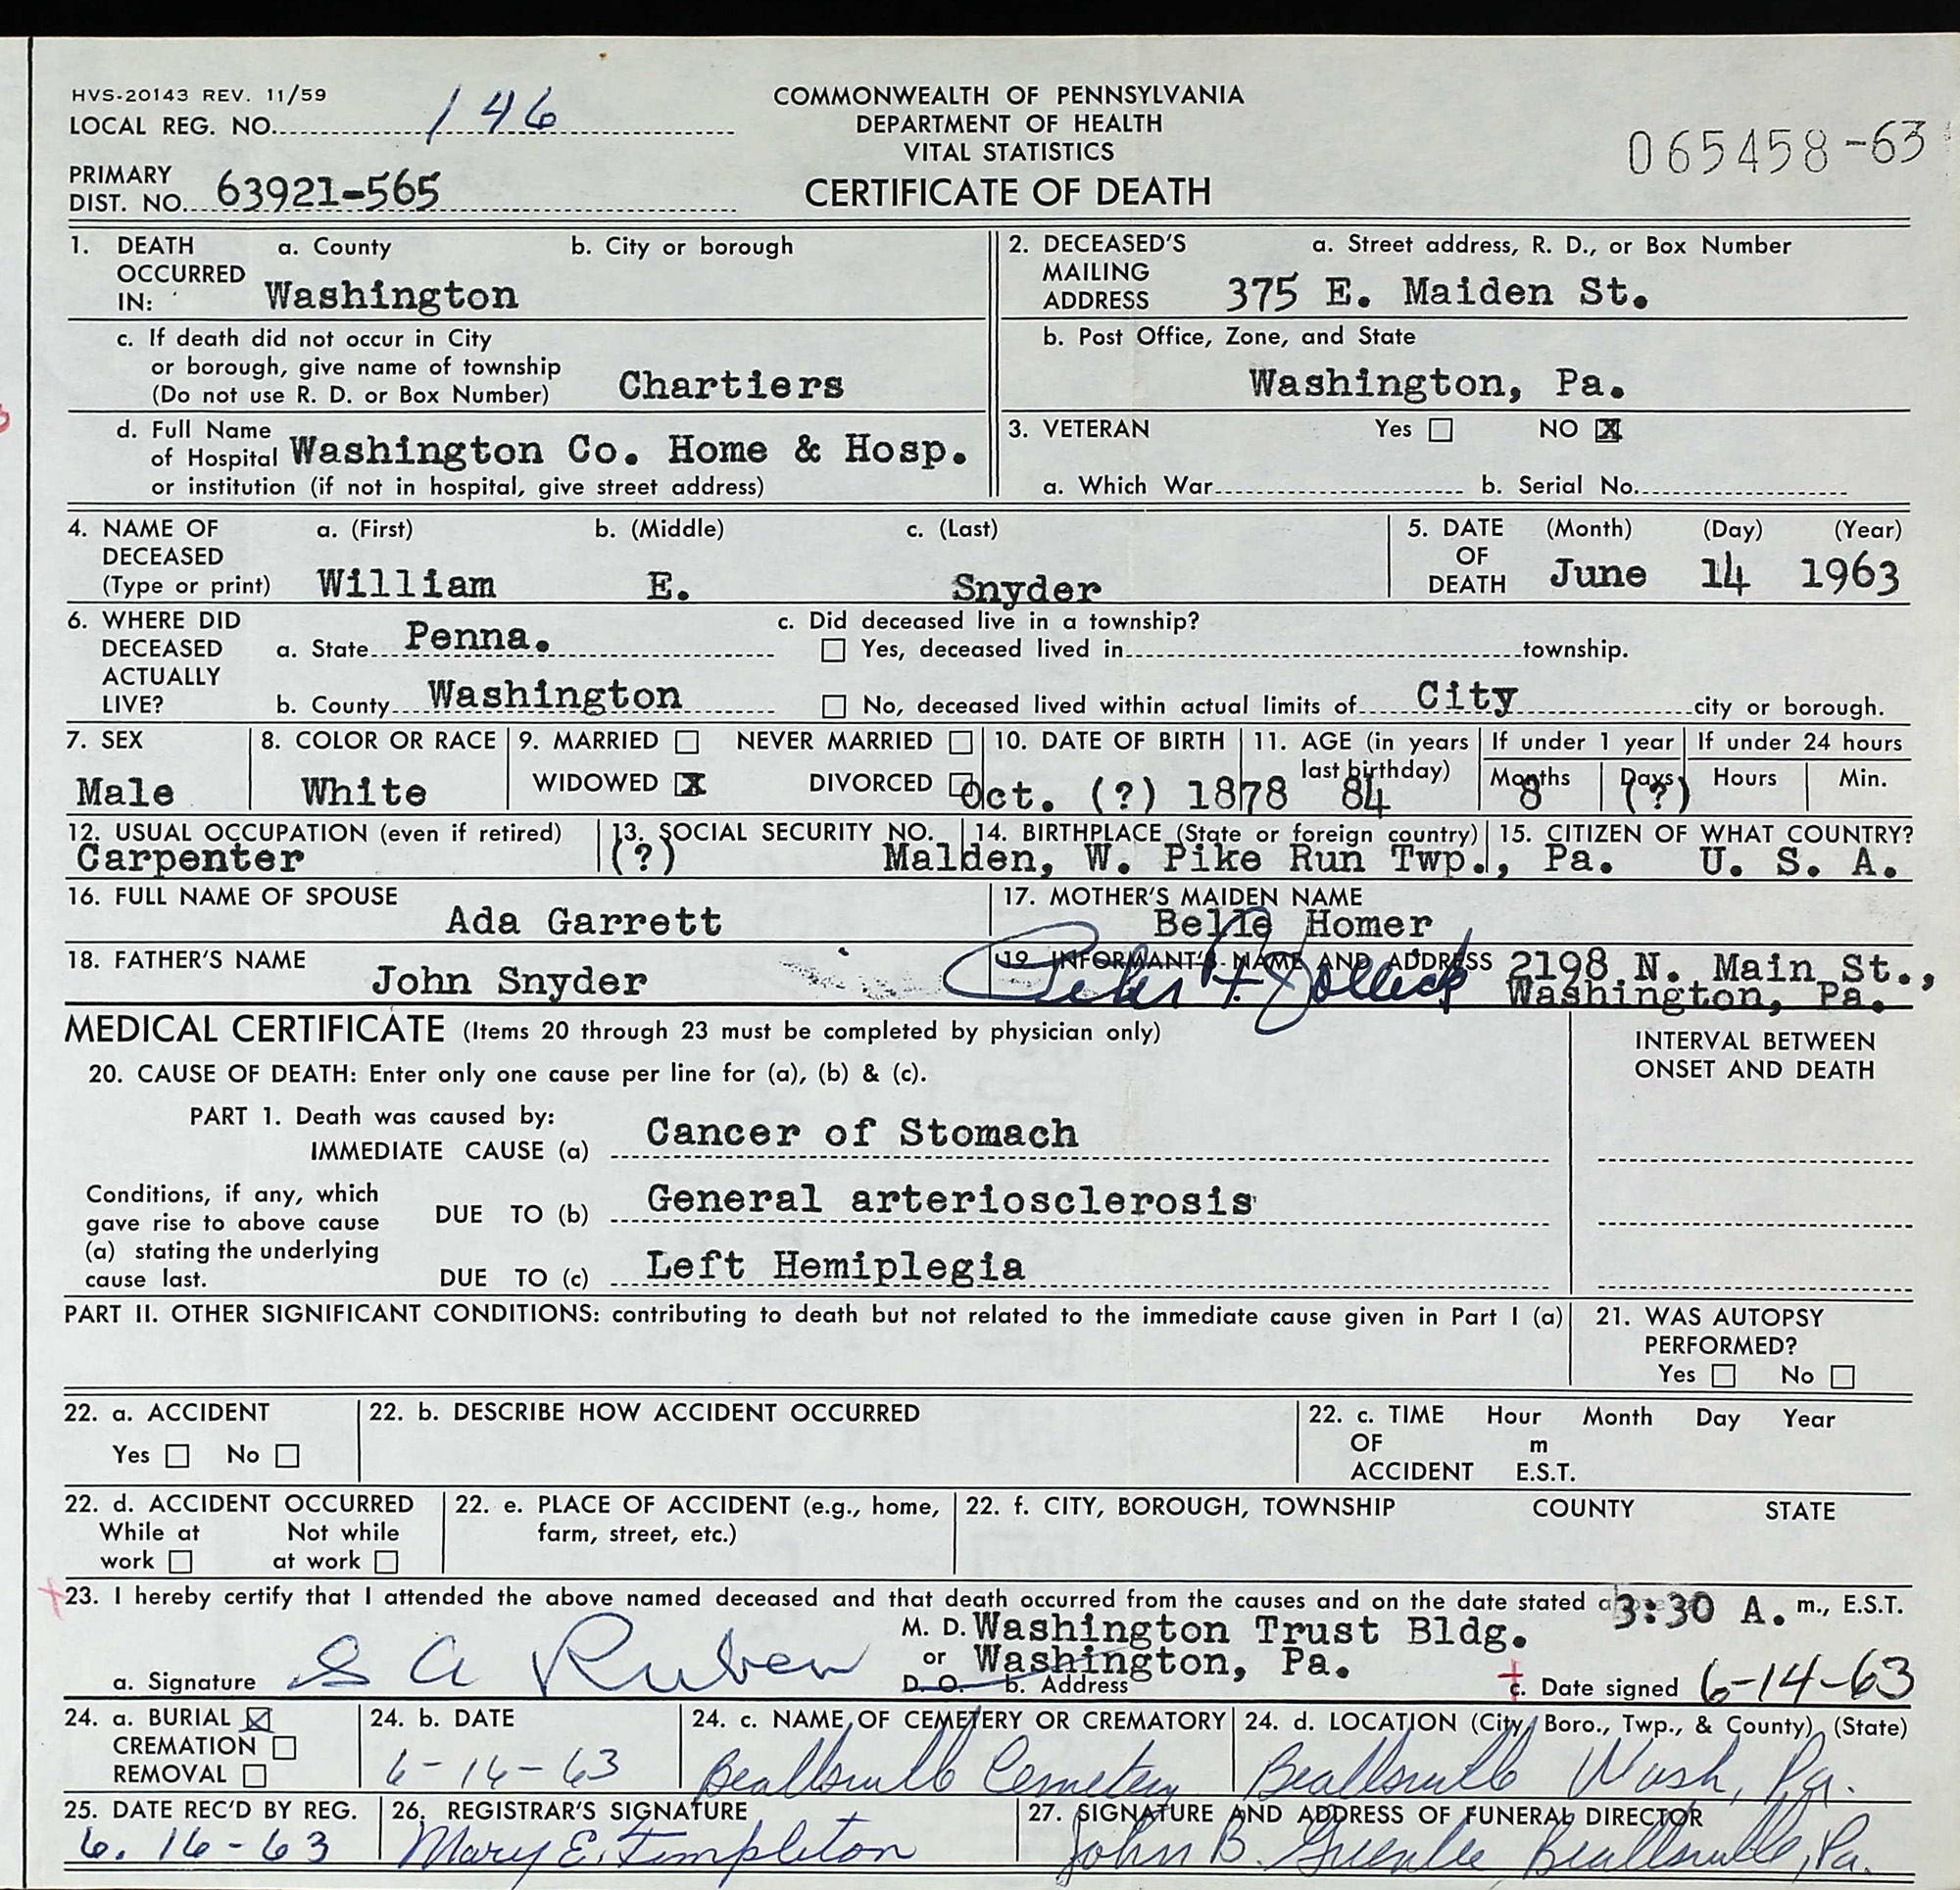 HVS-20143 REV. 11/59
LOCAL REG. NO. 146
COMMONWEALTH OF PENNSYLVANIA
DEPARTMENT OF HEALTH
VITAL STATISTICS
CERTIFICATE OF DEATH
065458-63
PRIMARY
DIST. NO. 63921-565
1. DEATH OCCURRED IN: a. County b. City or borough
Washington
c. If death did not occur in City
or borough, give name of township
(Do not use R. D. or Box Number) Chartiers
d. Full Name
of Hospital Washington Co. Home & Hosp.
or institution (if not in hospital, give street address)
2. DECEASED'S MAILING ADDRESS a. Street address, R. D., or Box Number
375 E. Maiden St.
b. Post Office, Zone, and State
Washington, Pa.
3. VETERAN Yes ☐ NO ☒
a. Which War b. Serial No.
4. NAME OF DECEASED (Type or print) a. (First) b. (Middle) c. (Last)
William E. Snyder
5. DATE OF DEATH (Month) (Day) (Year)
June 14 1963
6. WHERE DID DECEASED ACTUALLY LIVE?
a. State Penna.
b. County Washington
c. Did deceased live in a township?
☐ Yes, deceased lived in township.
☐ No, deceased lived within actual limits of City city or borough.
7. SEX
Male
8. COLOR OR RACE
White
9. MARRIED ☐ NEVER MARRIED ☐
WIDOWED ☒ DIVORCED ☐
10. DATE OF BIRTH
Oct. (?) 1878
11. AGE (in years last birthday)
84
If under 1 year
Months Days
8 (?)
If under 24 hours
Hours Min.
12. USUAL OCCUPATION (even if retired)
Carpenter
13. SOCIAL SECURITY NO.
(?)
14. BIRTHPLACE (State or foreign country)
Malden, W. Pike Run Twp., Pa.
15. CITIZEN OF WHAT COUNTRY?
U. S. A.
16. FULL NAME OF SPOUSE
Ada Garrett
17. MOTHER'S MAIDEN NAME
Belle Homer
18. FATHER'S NAME
John Snyder
19. INFORMANT'S NAME AND ADDRESS
2198 N. Main St.,
Washington, Pa.
MEDICAL CERTIFICATE (Items 20 through 23 must be completed by physician only)
INTERVAL BETWEEN
ONSET AND DEATH
20. CAUSE OF DEATH: Enter only one cause per line for (a), (b) & (c).
PART 1. Death was caused by:
IMMEDIATE CAUSE (a) Cancer of Stomach
Conditions, if any, which
gave rise to above cause
(a) stating the underlying
cause last.
DUE TO (b) General arteriosclerosis
DUE TO (c) Left Hemiplegia
PART II. OTHER SIGNIFICANT CONDITIONS: contributing to death but not related to the immediate cause given in Part I (a)
21. WAS AUTOPSY
PERFORMED?
Yes ☐ No ☐
22. a. ACCIDENT
Yes ☐ No ☐
22. b. DESCRIBE HOW ACCIDENT OCCURRED
22. c. TIME OF ACCIDENT Hour Month Day Year
m
E.S.T.
22. d. ACCIDENT OCCURRED
While at work ☐ Not while at work ☐
22. e. PLACE OF ACCIDENT (e.g., home,
farm, street, etc.)
22. f. CITY, BOROUGH, TOWNSHIP COUNTY STATE
23. I hereby certify that I attended the above named deceased and that death occurred from the causes and on the date stated 3:30 A. m., E.S.T.
a. Signature S A Ruben
M. D. or D. O.
Washington Trust Bldg.
Washington, Pa.
b. Address
c. Date signed 6-14-63
24. a. BURIAL ☒
CREMATION ☐
REMOVAL ☐
24. b. DATE
6-16-63
24. c. NAME OF CEMETERY OR CREMATORY
Beallsville Cemetery
24. d. LOCATION (City, Boro., Twp., & County) (State)
Beallsville Wash, Pa.
25. DATE REC'D BY REG.
6.16-63
26. REGISTRAR'S SIGNATURE
Mary E. Templeton
27. SIGNATURE AND ADDRESS OF FUNERAL DIRECTOR
John B. Greenlee Beallsville, Pa.